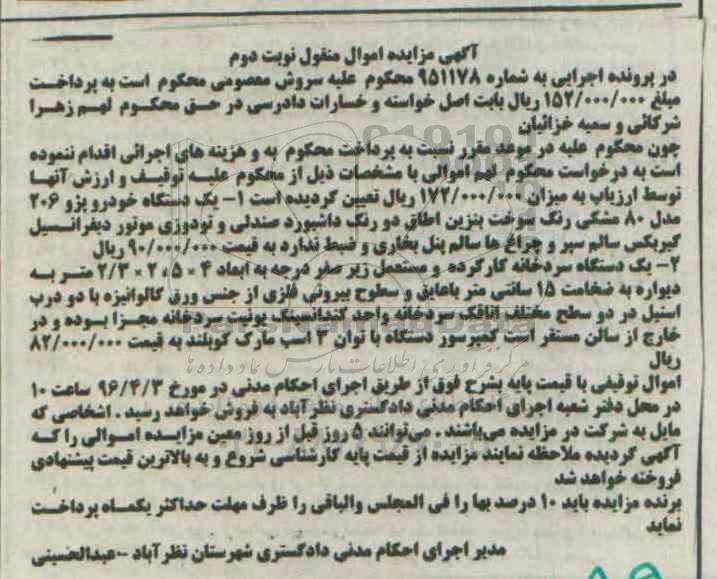 آگهی مزایده اموال منقول نوبت دوم
در پرونده اجرایی به شماره ۹۵۱۱۷۸ محکوم علیه سروش معصومی محکوم است به پرداخت
مبلغ ۱۵۲/۰۰۰/۰۰۰ ریال بابت اصل خواسته و خسارات دادرسی در حق محکوم لهم زهرا
شرکائی و سمیه خزائیان
چون محکوم علیه در موعد مقرر نسبت به پرداخت محکوم به و هزینه های اجرائی اقدام ننموده
است به درخواست محکوم لهم اموالی با مشخصات ذیل از محکوم علیه توقیف و ارزش آنها
توسط ارزیاب به میزان ۱۷۲/۰۰۰/۰۰۰ ریال تعیین گردیده است ۱- یک دستگاه خودرو پژو ۲۰۶
مدل ۸۰ مشکی رنگ سوخت بنزین اطاق دو رنگ داشبورد صندلی و تودوزی موتور دیفرانسیل
گیربکس سالم سپر و چراغ ها سالم پنل بخاری و ضبط ندارد به قیمت ۹۰/۰۰۰/۰۰۰ ریال
۲- یک دستگاه سردخانه کارکرده و مستعمل زیر صفر درجه به ابعاد ۴ × ۵ ، ۲ × ۲/۳ متر به
دیواره به ضخامت ۱۵ سانتی متر باعایق و سطوح بیرونی فلزی از جنس ورق گالوانیزه با دو درب
استیل در دو سطح مختلف اتاقک سردخانه واحد کندانسینگ یونیت سردخانه مجزا بوده و در
خارج از سالن مستقر است کمپرسور دستگاه با توان ۳ اسب مارک کوپلند به قیمت ۸۲/۰۰۰/۰۰۰
ریال
اموال توقیفی با قیمت پایه بشرح فوق از طریق اجرای احکام مدنی در مورخ ۹۶/۴/۳ ساعت ۱۰
در محل دفتر شعبه اجرای احکام مدنی دادگستری نظرآباد به فروش خواهد رسید . اشخاصی که
مایل به شرکت در مزایده می‌باشند . می‌توانند ۵ روز قبل از روز معین مزایده اموالی را که
آگهی گردیده ملاحظه نمایند مزایده از قیمت پایه کارشناسی شروع و به بالاترین قیمت پیشنهادی
فروخته خواهد شد
برنده مزایده باید ۱۰ درصد بها را فی المجلس والباقی را ظرف مهلت حداکثر یکماه پرداخت
نماید
مدیر اجرای احکام مدنی دادگستری شهرستان نظرآباد -عبدالحسینی